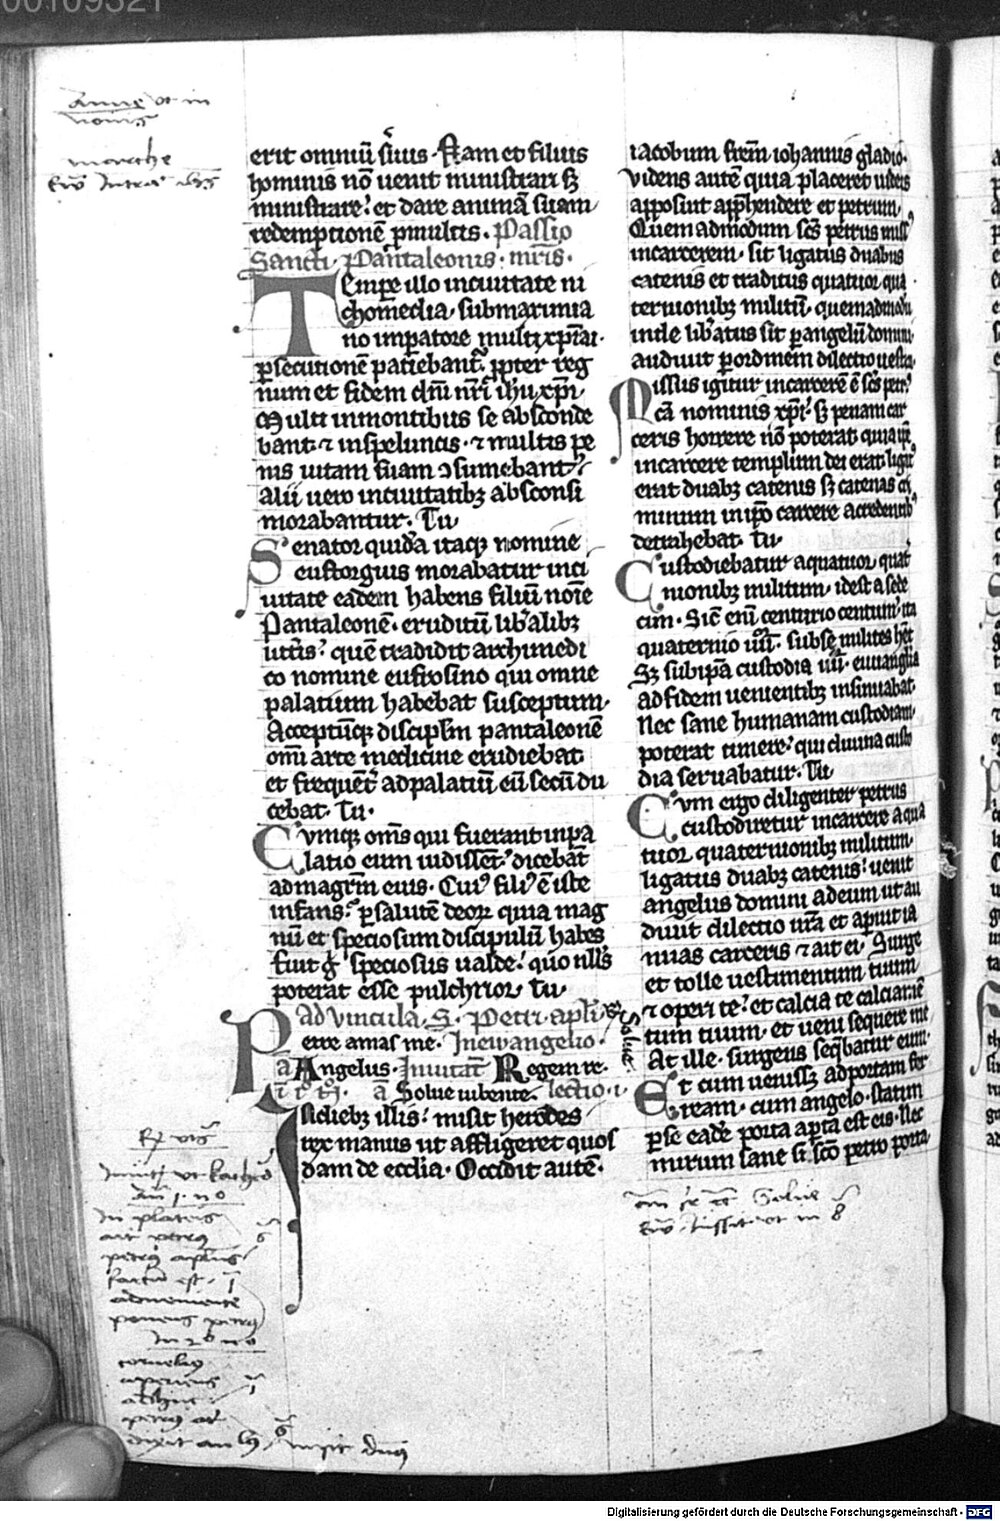 erit omniū s̄uus. Nam et filius
hominis nō uenit ministrari sꝫ
ministrare: et dare animā suam
redemptionē ꝓ multis. Passio
Sancti Pantaleonis. mr̄is.
Tempore illo inciuitate ni
chomedia, submaximia
no imꝑatore multi xp̄iai
ꝑsecutionē patiebant̄ ꝓpter reg
num et fidem dn̄i nr̄i ih̄u xp̄i.
Multi inmontibus se absconde
bant ⁊ inspeluncis. ⁊ multis pe
nis uitam suam ↄsumebant:
alii uero inciuitatibꝫ absconsi
morabantur. Tu
Senator quidā itaqꝫ nomine
eustorgius morabatur inci
uitate eadem habens filiū noīe
Pantaleonē. eruditū lib̄alibꝫ
litt̄is: quē tradidit archimedi
co nomine eufrosino qui omne
palatium habebat susceptum.
Acceptūqꝫ discipl̄m pantaleonē
om̄i arte medicine erudiebat
et frequent̄ adpalatiū eū secū du
cebat. Tu.
Cumqꝫ om̄s qui fuerant inpa
latio eum uidissent: dicebāt
admagr̄m eius. Cuiꝰ filiꝰ ē iste
infans: ꝑ salutē deoꝝ quia mag
nū et speciosum discipulū habes
fuit g̊ speciosus ualde: quo nll̄s
poterat esse pulchrior. Tu.
ad vincula. S. Petri. apl̄i.
Petre amas me. Inewangelio.
a Angelus. Inuitat̄ Regem
ā Solue iubente. lectio. i.
Isdiebꝫ illis: misit herodes
rex manus ut affligeret quos
dam de ecclīa. Occidit autē.
iacobum fr̄em iohannis gladio.
Videns autē quia placeret iudeis
apposuit app̄hendere et petrum.
Quemadmodum sc̄s petrus missꝰ
incarcerem. sit ligatus duabus
catenis et traditus quatuor qua
ternionibꝫ militū. quemadmodū
inde lib̄atus sit ꝑ angelū domini
audiuit ꝑ ordinem dilectio uestra.
Missus igitur incarcerē ē sc̄s petrꝰ
cā nominis xp̄i. sꝫ penam car
ceris horrere nō poterat quia ip̄e
incarcere templum dei erat. ligatꝰ
erat duabꝫ catenis sꝫ catenas cri
minum inip̄o carcere accedentibꝫ
detrahebat. Tu
Custodiebatur aquatuor quat
nionibꝫ militum. idest asede
cim. Sic̄ eni centurio centum. ita
quaternio iiii. subse milites hēt
Sꝫ subip̄a custodia iiii. euuangl̄ia
adfidem uenientibꝫ insinuabat.
Nec sane humanam custodiam
poterat timere: qui diuina custo
dia seruabatur. Tu
Cum ergo diligenter petrus
custodiretur incarcere aqua
tuor quaternionibꝫ militum.
ligatus duabꝫ catenis: uenit
angelus domini adeum ut au
diuit dilectio ur̄a et aperuit ia
nuas carceris ⁊ ait ei. Surge
et tolle uestimentum tuum
⁊ operi te: et calcia te calciamē
tum tuum. et ueni sequere me
At ille. surgens seq̄batur eum.
Et cum uenissꝫ adportam fer
ream. cum angelo. statim
ꝑ se eadē porta aꝑta est eis. Nec
mirum sane si sc̄o petro porta
In plateis
ait petrus
petrus aplus
factum est. i
adueniente
ponens petrus
In 2º nº
cornelius
aperiens
Digitalisierung gefördert durch die Deutsche Forschungsgemeinschaft - DFG